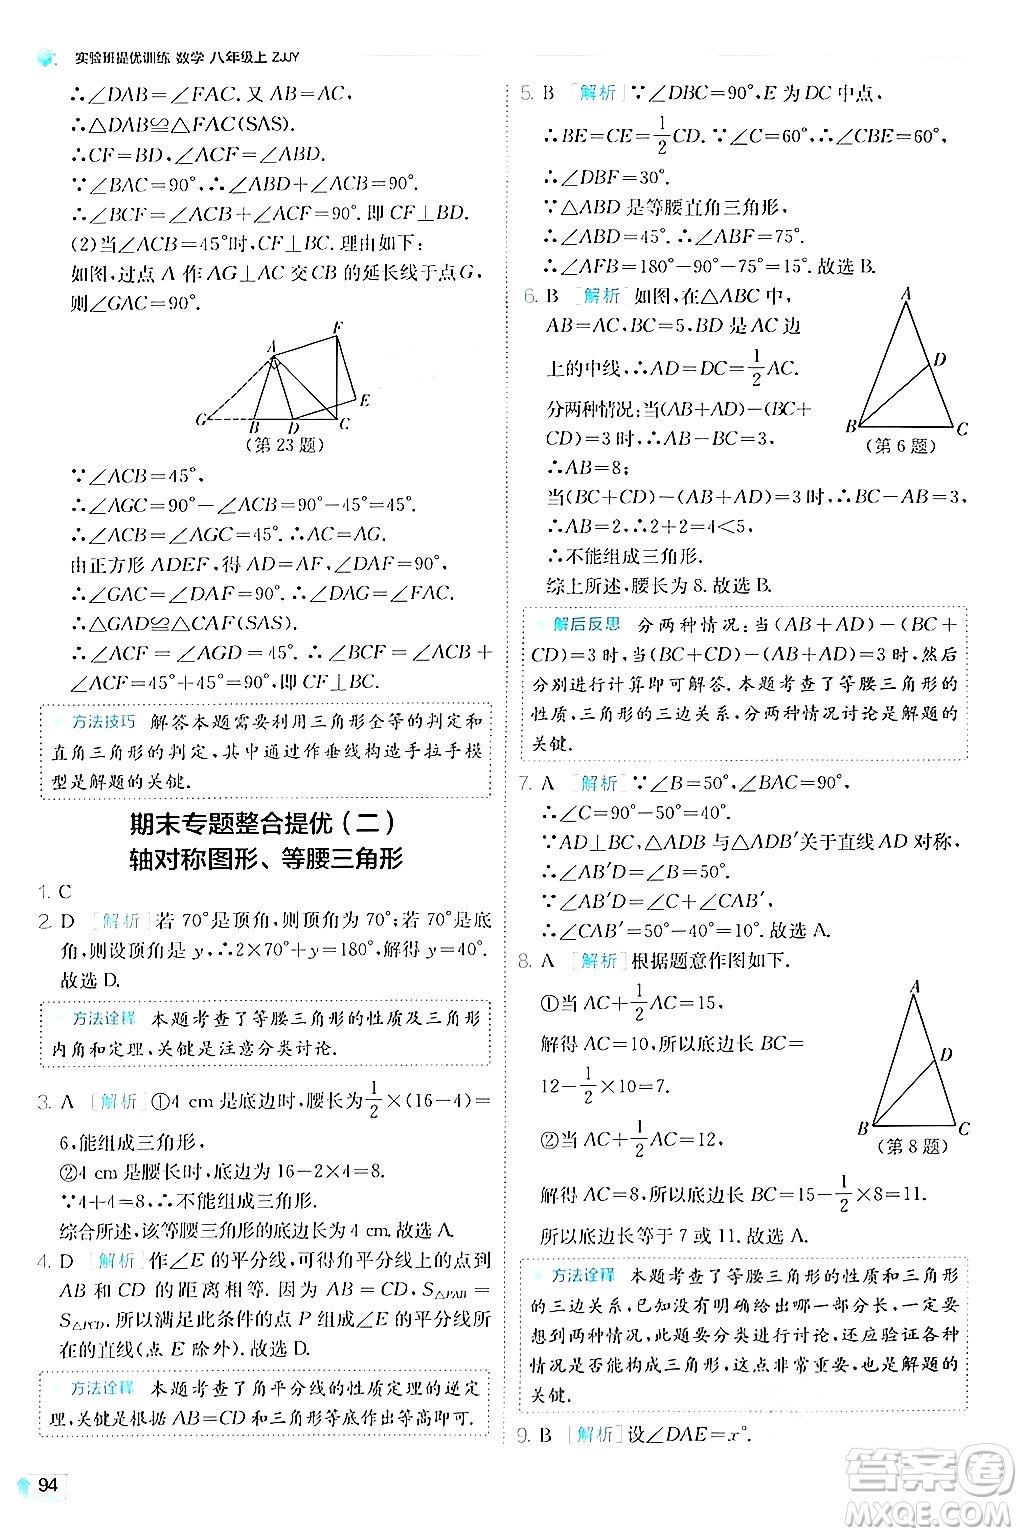 实验班提优训练 数学 八年级上 ZJJY
∴∠DAB=∠FAC. 又 AB=AC,
∴△DAB≌△FAC(SAS).
∴CF=BD,∠ACF=∠ABD.
∵∠BAC=90°,∴∠ABD+∠ACB=90°.
∴∠BCF=∠ACB+∠ACF=90°. 即 CF⊥BD.
(2)当∠ACB=45°时,CF⊥BC. 理由如下:
如图,过点 A 作 AG⊥AC 交 CB 的延长线于点 G,
则∠GAC=90°.
F
A
E
G B D C
(第 23 题)
∵∠ACB=45°,
∴∠AGC=90°-∠ACB=45°.
∴∠ACB=∠AGC=45°. ∴AC=AG.
由正方形 ADEF,得 AD=AF,∠DAF=90°,
∴∠GAD=∠CAF=90°-∠DAC.
∴△GAD≌△CAF(SAS).
∴∠ACF=∠AGD=45°. ∴∠BCF=∠ACB+
∠ACF=45°+45°=90°,即 CF⊥BC.
方法技巧 解答本题需要利用三角形全等的判定和
直角三角形的判定,其中通过作垂线构造手拉手模
型是解题的关键.
期末专题整合提优(二)
轴对称图形、等腰三角形
1. C
2. D [解析]若 70°是顶角,则顶角为 70°;若 70°是底
角,则设顶角是 y,∴2×70°+y=180°,解得 y=40°.
故选 D.
方法诠释 本题考查了等腰三角形的性质及三角形
内角和定理,关键是注意分类讨论.
3. A [解析]①4 cm 是底边时,腰长为1/2×(16-4)=
6,能组成三角形,
②4 cm 是腰长时,底边为 16-2×4=8,
∵4+4=8,∴不能组成三角形.
综合所述,该等腰三角形的底边长为 4 cm. 故选 A.
4. D [解析]作∠E 的平分线,可得角平分线上的点到
AB 和 CD 的距离相等. 因为 AB=CD,S△PAB=
S△PCD,所以满足此条件的点 P 组成∠E 的平分线所
在的直线(点 E 除外). 故选 D.
方法诠释 本题考查了角平分线的性质定理的逆定
理,关键是根据 AB=CD 和三角形等底作出等高即可.
94
5. B [解析]∵∠DBC=90°,E 为 DC 中点,
∴BE=CE=1/2CD. ∵∠C=60°,∴∠CBE=60°,
∴∠DBF=30°.
∵△ABD 是等腰直角三角形,
∴∠ABD=45°. ∴∠ABF=75°.
∴∠AFB=180°-90°-75°=15°. 故选 B.
6. B [解析]如图,在△ABC 中,
AB=AC,BC=5,BD 是 AC 边
上的中线,∴AD=DC=1/2AC.
分两种情况:当(AB+AD)-(BC+
CD)=3 时,∴AB-BC=3,
∴AB=8;
当(BC+CD)-(AB+AD)=3 时,∴BC-AB=3,
∴AB=2,∴2+2=4<5,
∴不能组成三角形.
综上所述,腰长为 8. 故选 B.
A
D
B C
(第 6 题)
解后反思 分两种情况:当(AB+AD)-(BC+
CD)=3 时;当(BC+CD)-(AB+AD)=3 时,然后
分别进行计算即可解答. 本题考查了等腰三角形的
性质,三角形的三边关系,分两种情况讨论是解题的
关键.
7. A [解析]∵∠B=50°,∠BAC=90°,
∴∠C=90°-∠B=90°-50°=40°.
∵AD⊥BC,且△ADB 与△ADB′关于直线 AD 对称,
∴∠AB′D=∠B=50°.
∵∠AB′D=∠C+∠CAB′,
∴∠CAB′=50°-40°=10°. 故选 A.
8. A [解析]根据题意作图如下.
①当 AC+1/2AC=15,
解得 AC=10,所以底边长 BC=
12-1/2×10=7;
②当 AC+1/2AC=12,
解得 AC=8,所以底边长 BC=15-1/2×8=11.
所以底边长等于 7 或 11. 故选 A.
A
D
B C
(第 8 题)
方法诠释 本题考查了等腰三角形的性质和三角形
的三边关系,已知没有明确给出哪一部分长,一定要
想到两种情况,此题要分类进行讨论,还应验证各种
情况是否能构成三角形,这点非常重要,也是解题的
关键.
9. B [解析]设∠DAE=x°.
答案圈
MXQE.COM